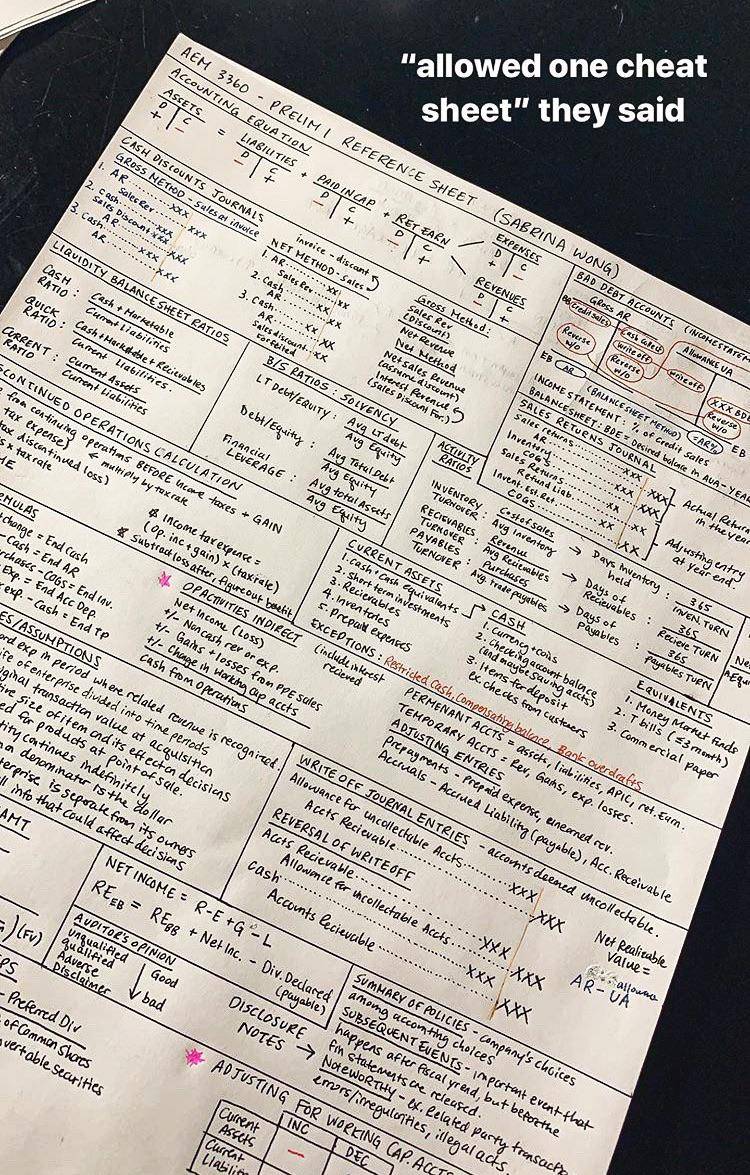 "allowed one cheat
sheet" they said
AEM 3360 - PRELIM 1 REFERENCE SHEET (SABRINA WONG)
ACCOUNTING EQUATION
ASSETS = LIABILITIES + PAID IN CAP + RET EARN
D C
+ -
D C
- +
D C
- +
D C
- +
EXPENSES
D C
+ -
REVENUES
D C
- +
CASH DISCOUNTS JOURNALS
GROSS METHOD - Sales at invoice
1. AR ........ XXX
Sales Rev .... XXX
2. Cash ...... XXX
Sales Discount XXX
AR ....... XXX
3. Cash ...... XXX
AR ....... XXX
NET METHOD - Sales @
invoice - discount
1. AR ....... XX
Sales Rev .... XX
2. Cash ...... XX
AR ....... XX
3. Cash ...... XX
AR ....... XX
Sales discount.. XX
forfeited
Gross Method:
Sales Rev
(Discount)
Net Revenue
Net Method
Net Sales Revenue
(assume discount)
Interest Revenue
(Sales Discount For.)
BAD DEBT ACCOUNTS (INCOME STATEM
Gross AR
BB
Credit sales
Reverse
w/o
Cash collect
Write off
Reverse
w/o
Allowance UA
write off
XXX BD
Reverse
w/o
EB = AR
= AR% EB
(BALANCE SHEET METHOD)
INCOME STATEMENT: % of credit sales
BALANCE SHEET: BDE = Desired balance in AUA - YEA
SALES RETURNS JOURNAL
Sales returns .... XX
AR ....... XXX
Inventory .... XX
COGS ....... XXX
Sales Returns .... XX
Refund Liab. .... XX
Invent. Est. Ret ... XX
COGS ....... XX
Actual Return
in the year
Adjusting entry
at year end
LIQUIDITY BALANCE SHEET RATIOS
CASH
RATIO: Cash + Marketable
Current Liabilities
QUICK
RATIO: Cash + Marketable + Recievables
Current Liabilities.
CURRENT
RATIO: Current Assets
Current Liabilities
B/S RATIOS: SOLVENCY
LT Debt/Equity: Avg LT debt
Avg Equity
Debt/Equity: Avg Total Debt
Avg Equity
Financial
LEVERAGE: Avg total Assets
Avg Equity
ACTIVITY
RATIOS
INVENTORY
TURNOVER: Cost of Sales
Avg Inventory → Days Inventory: 365
held INVEN. TURN
RECIEVABLES
TURNOVER: Revenue
Avg Recievables → Days of
Recievables: 365
RECIEV TURN
PAYABLES
TURNOVER: Purchases
Avg trade payables → Days of
Payables: 365
PAYABLES TURN
SCONTINUED OPERATIONS CALCULATION
from continuing operations BEFORE income taxes + GAIN
tax expense) ← multiply by tax rate
tax discontinued loss)
x tax rate
* Income tax expense =
(Op. inc + gain) x (tax rate)
* Subtract loss after, figure out benefit
RMULAS
change = End Cash
- Cash = End AR
rchases - COGS = End Inv.
Exp = End Acc Dep.
exp - Cash = End TP
OP ACTIVITIES INDIRECT
Net Income (Loss)
+/- Noncash rev or exp.
+/- Gains + losses from PPE sales
+/- Change in Working Cap accts
Cash from Operations
(include interest
recieved
CURRENT ASSETS
1. Cash + Cash Equivalents
2. Short term investments
3. Recievables
4. Inventories
5. Prepaid expenses
CASH
1. Currency + coins
2. Checking account balance
(and maybe Saving accts)
3. Items for deposit
ex. Checks from customers
EQUIVALENTS
1. Money Market Funds
2. T bills (≤3 month)
3. Commercial Paper
EXCEPTIONS: Restricted Cash, Compensating balance, Bank overdrafts
PERMENANT ACCTS = assets, liabilities, APIC, ret. Earn.
TEMPORARY ACCTS = Rev, Gains, exp, losses.
ADJUSTING ENTRIES
Prepayments - Prepaid expense, unearned rev.
Accruals - Accrued Liability (payable), Acc. Receivable
ES/ASSUMPTIONS
ord exp in period where related revenue is recognized.
ife of enterprise divided into time periods
original transaction value at acquisition
tive size of item and its effect on decisions
ed for products at point of sale.
tity continues indefinitely
n denominator is the dollar
terprise is separate from its owners
ll info that could affect decisions
WRITE OFF JOURNAL ENTRIES - accounts deemed uncollectable.
Allowance for uncollectable Accts ..... XXX
Accts Recievable ......... XXX
REVERSAL OF WRITE OFF
Accts Recievable ......... XXX
Allowance for uncollectable Accts .... XXX
Cash ............ XXX
Accounts Recievable ........ XXX
Net Realizable
Value =
AR - UA
allowance
AMT
) (FV)
NET INCOME = R - E + G - L
RE EB = RE BB + Net Inc. - Div. Declared
(payable)
AUDITOR'S OPINION
Unqualified
qualified
Adverse
Disclaimer
Good
bad
PS
- Preferred Div
of Common Shares
vertable Securities
DISCLOSURE
NOTES →
SUMMARY OF POLICIES - company's choices
among accounting choices
SUBSEQUENT EVENTS - important event that
happens after fiscal yr end, but before the
fin statements are released.
NOTEWORTHY - ex. Related party transactio
errors/irregularities, illegal acts.
ADJUSTING FOR WORKING CAP. ACCTS
INC DEC
Current
Assets -
Current
Liabilit